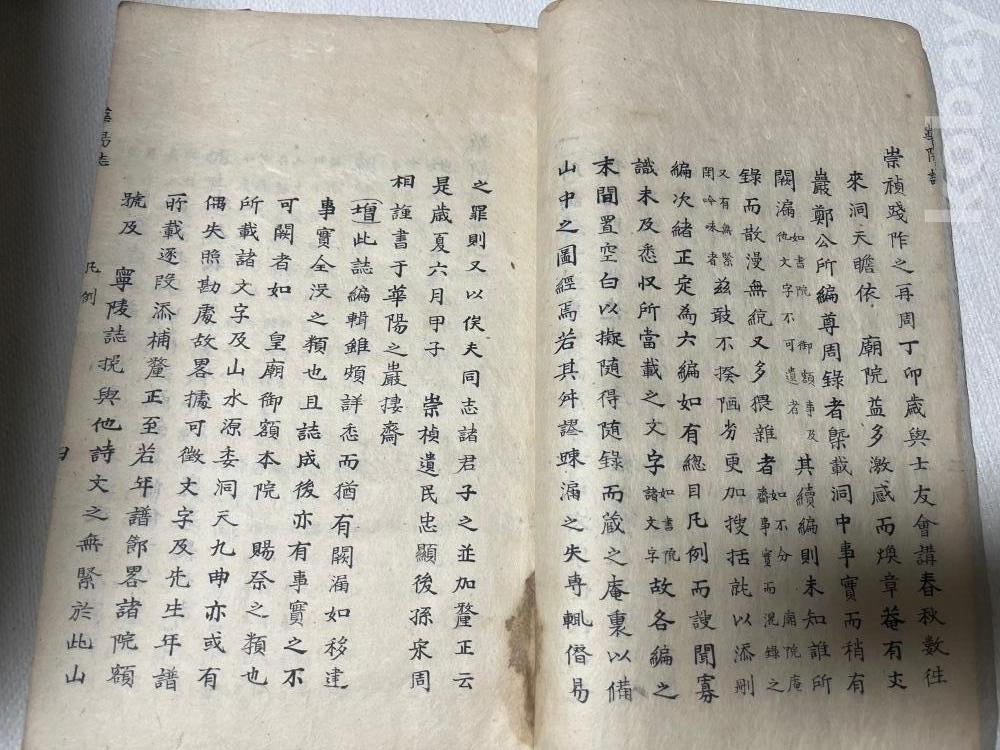 崇禎踐阼之再周丁卯歲與士友會講春秋數往
來洞天瞻依 廟院益多激感而煥章菴有丈
巖鄭公所編尊周錄者槩載洞中事實而稍有
闕漏如書院御額事及他文字不可遺者其續編則未知誰所
錄而散漫無統又多猥雜者如不分廟院庵齋事實而混錄之
又有無緊閑吟味者玆敢不揆陋劣更加搜括訖以添刪
編次緒正定為六編如有總目凡例而謏聞寡
識未及悉收所當載之文字如書院諸文字故各編之
末間置空白以擬隨得隨錄而藏之庵裏以備
山中之圖經焉若其舛誤踈漏之失專輒僭易
之罪則又以俟夫同志諸君子之並加釐正云
是歲夏六月甲子 崇禎遺民忠顯後孫宋周
相謹書于華陽之巖捿齋
增此誌編輯雖頗詳悉而猶有闕漏如移建
事實全沒之類也且誌成後亦有事實之不
可闕者如 皇廟御額本院 賜祭之類也
所載諸文字及山水源委洞天九曲亦或有
偶失照勘處故畧據可徵文字及先生年譜
所載逐段添補釐正至若年譜節畧諸院額
號及 寧陵誌挽與他詩文之無緊於此山
凡例
華陽誌